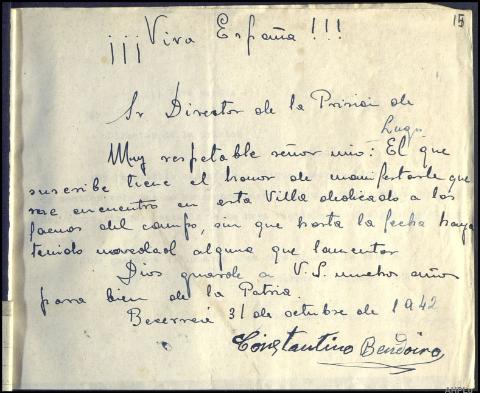 15
¡¡¡Viva España!!!
Sr Director de la Prision de
Lugo
Muy respetable señor mio: El que
suscribe tiene el honor de manifestarle que
se encuentro en esta Villa dedicado a las
faenas del campo, sin que hasta la fecha haya
tenido novedad alguna que lamentar
Dios guarde a V.S. muchos años
para bien de la Patria.
Becerreá 31 de octubre de 1942
Constantino Bendoiro
AHPLu